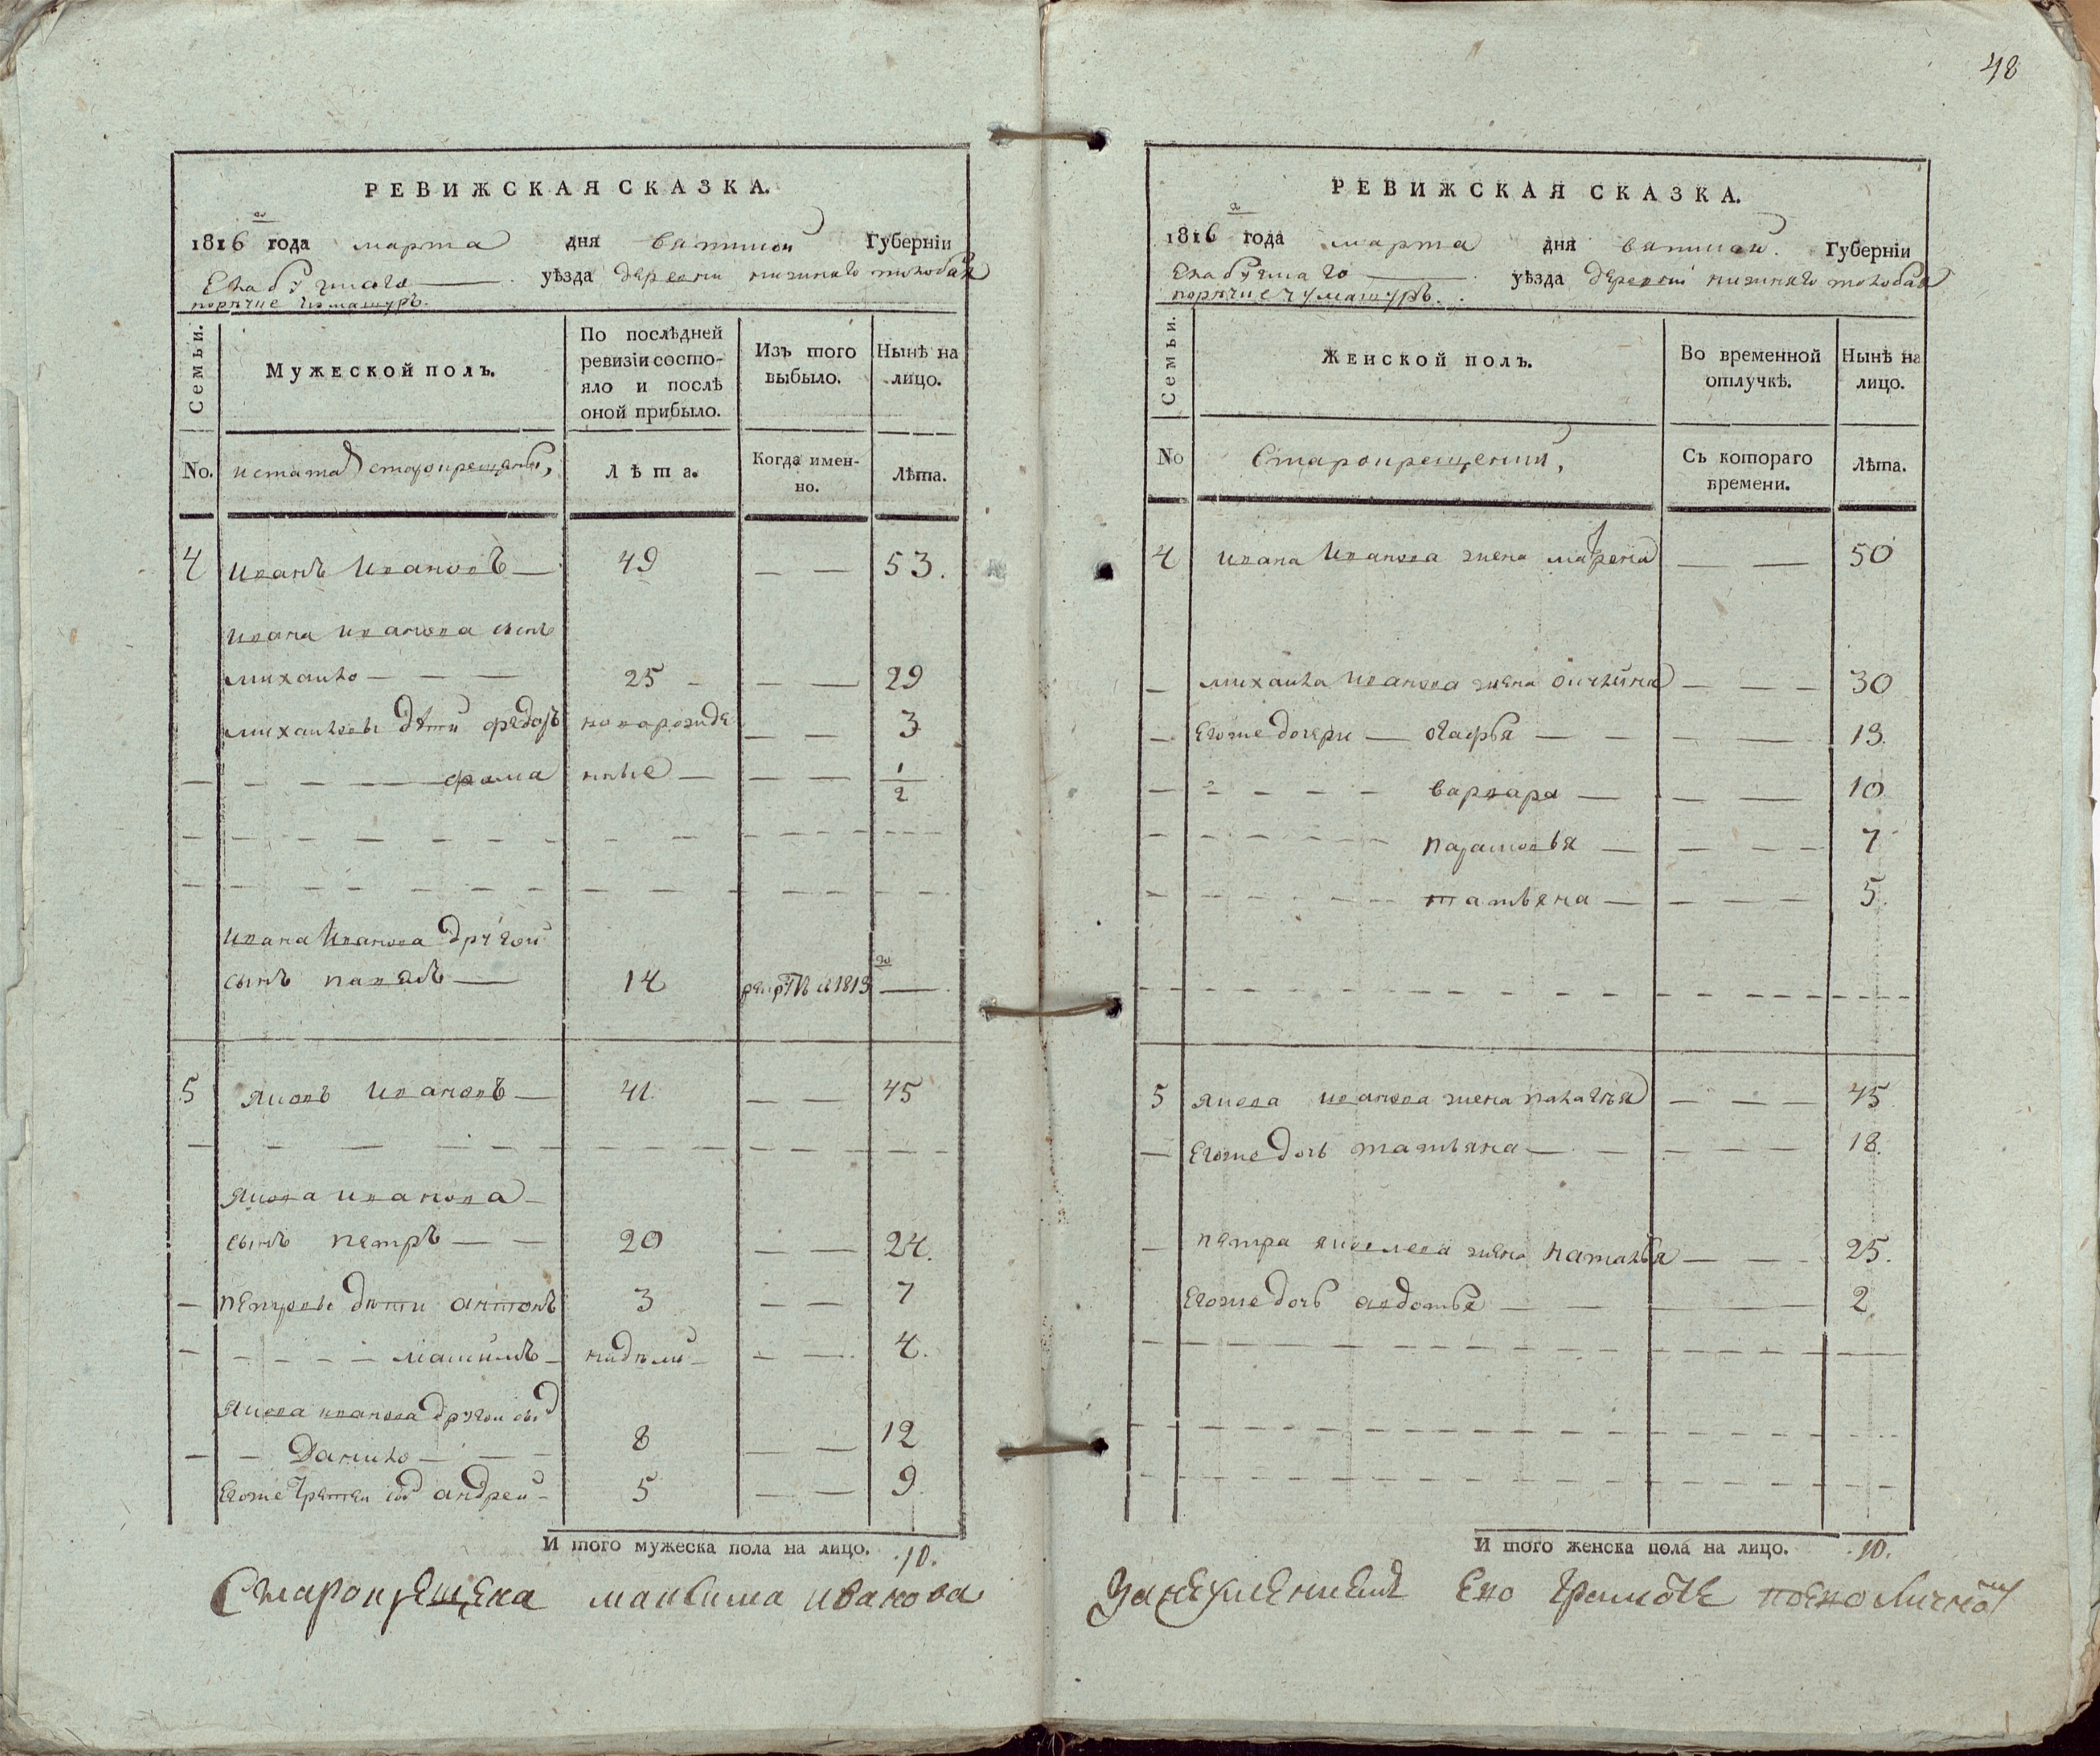 48
РЕВИЖСКАЯ СКАЗКА.
1816 го года марта дня вятской Губерніи
Елабужского уѣзда деревни нижняго
порѣчие
Семьи.
Мужеской полъ.
По послѣдней ревизіи состояло и послѣ оной прибыло.
Изъ того выбыло.
Нынѣ на лицо.
No.
старокрещены,
Лѣта.
Когда именно.
Лѣта.
4 Иванъ Ивановъ — 49 — — 53.
Ивана Иванова сынъ
михайло — — — 25 — — — 29
михайловы дѣти федоръ новорожде — — 3
— — — — фома нные — — — 1/2
Ивана Иванова другой
сынъ павелъ — 14 1813 го —
5 яковъ Ивановъ — 41. — — 45
якова иванова —
сынъ петръ — — 20 — — 24.
— петровы дѣти антонъ 3 — — 7
— — — — максимъ — нидѣли — — — 4.
якова иванова другой сынъ
— — Данило — — — 8 — — 12
Егоже третей сын андрей — 5 — — 9
И того мужеска пола на лицо. 10.
Старокрещена максима иванова
РЕВИЖСКАЯ СКАЗКА.
1816 го года марта дня вятской. Губерніи
Елабужскаго уѣзда деревни нижняго
порѣчие чумашуръ.
Семьи.
Женской полъ.
Во временной отлучкѣ.
Нынѣ на лицо.
No
Старокрещении,
Съ котораго времени.
Лѣта.
4 ивана Иванова жена марфа — — 50
— михаила Иванова жена — — — 30
— Егоже дочери — огафья — — — — — 13.
варвара — — — 10
парасковья — — — — 7
татьяна — — — — 5.
5 якова иванова жена палагея — — — 45
— Егоже дочь татьяна — — — — — 18.
— петра яковлева жена наталья — — — 25.
Егоже дочь авдотья — — — — 2.
И того женска пола на лицо. 10.
занеумениемъ ево грамотѣ поево личной